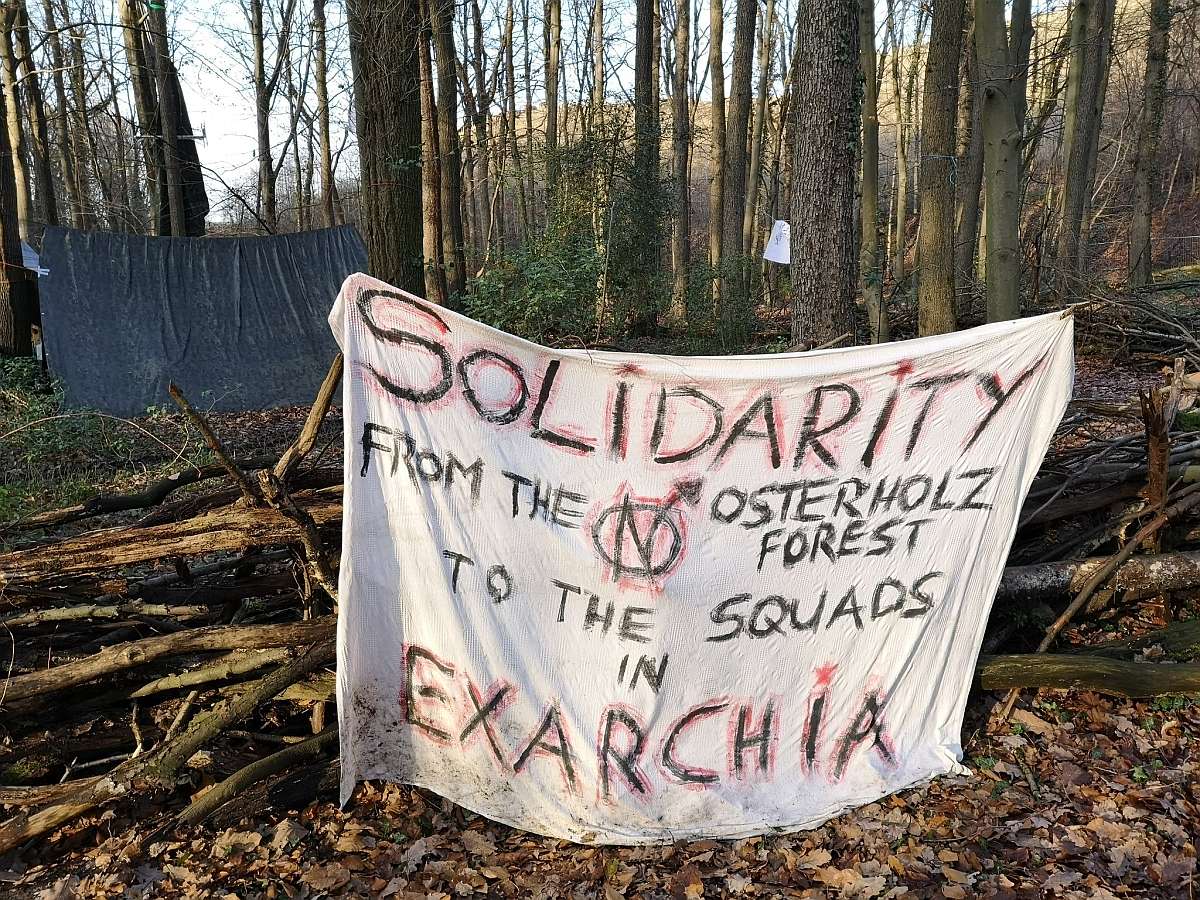 SOLIDARITY
FROM THE OSTERHOLZ
FOREST
TO THE SQUADS
IN
EXARCHIA